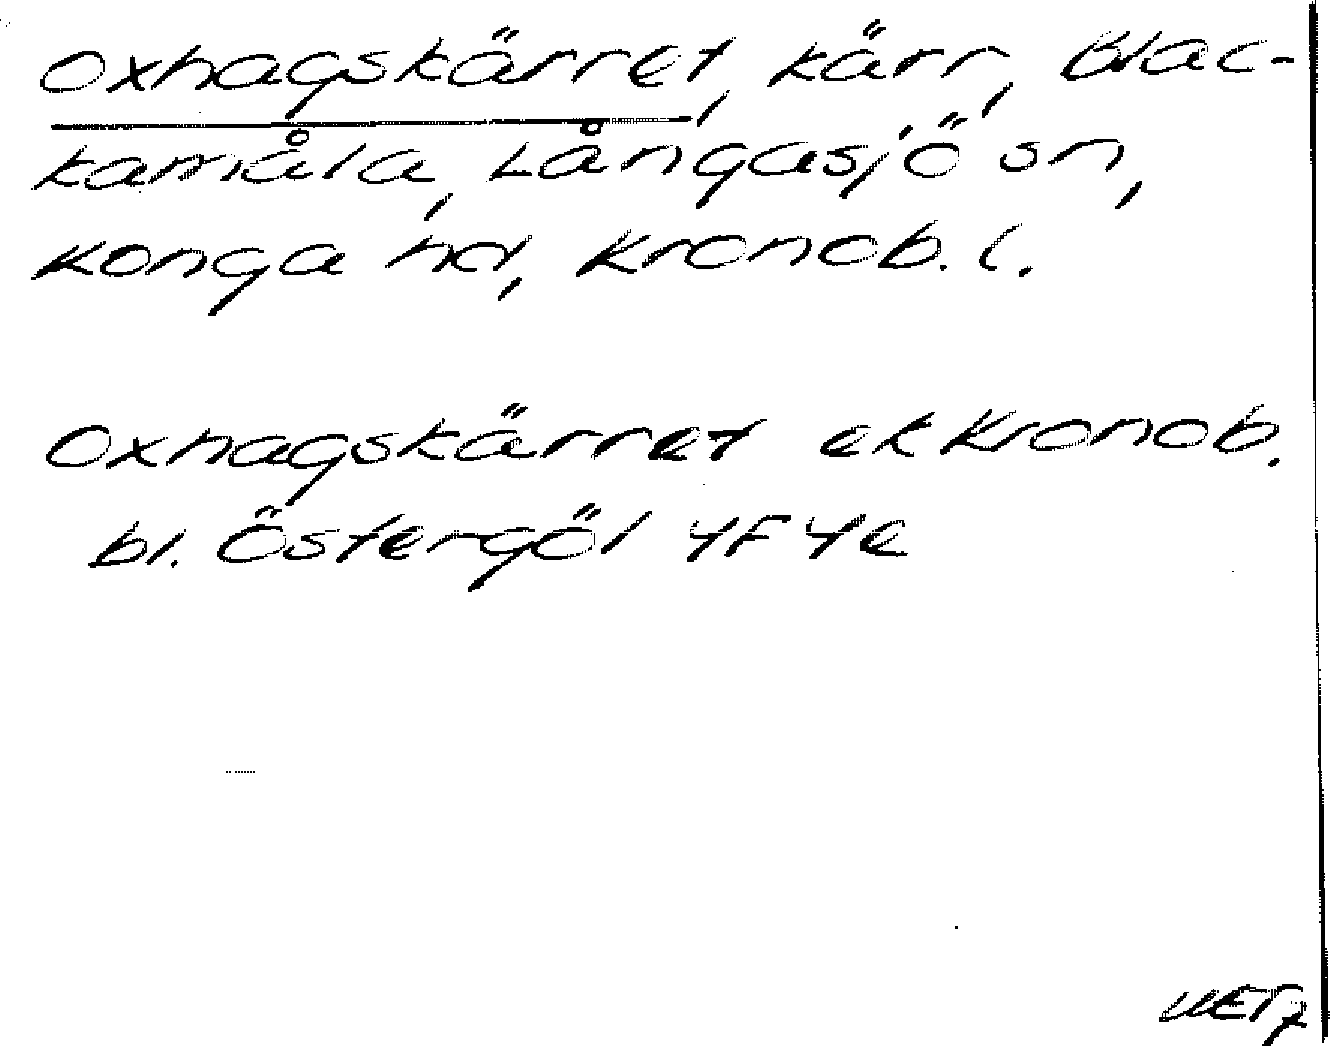 Oxhagskärret, kärr, Blac-
kamåla, Långasjö sn,
Konga hd, Kronob. l.
Oxhagskärret ek Kronob.
bl. Östergöl 4F4e